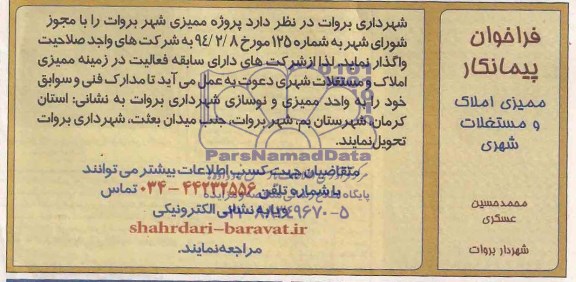 فراخوان
پیمانکار
ممیزی املاک
و مستغلات
شهری
محمدحسین
عسکری
شهردار بروات
شهرداری بروات در نظر دارد پروژه ممیزی شهر بروات را با مجوز
شورای شهر به شماره ۱۲۵ مورخ ۹۴/۲/۸ به شرکت های واجد صلاحیت
واگذار نماید. لذا از شرکت های دارای سابقه فعالیت در زمینه ممیزی
املاک و مستغلات شهری دعوت به عمل می آید تا مدارک فنی و سوابق
خود را به واحد ممیزی و نوسازی شهرداری بروات به نشانی: استان
کرمان، شهرستان بم، شهر بروات، جنب میدان بعثت، شهرداری بروات
تحویل نمایند.
ParsNamadData
متقاضیان جهت کسب اطلاعات بیشتر می توانند
با شماره تلفن ۴۴۲۳۲۵۵۶ - ۰۳۴ تماس
و یا به نشانی الکترونیکی
shahrdari-baravat.ir
مراجعه نمایند.